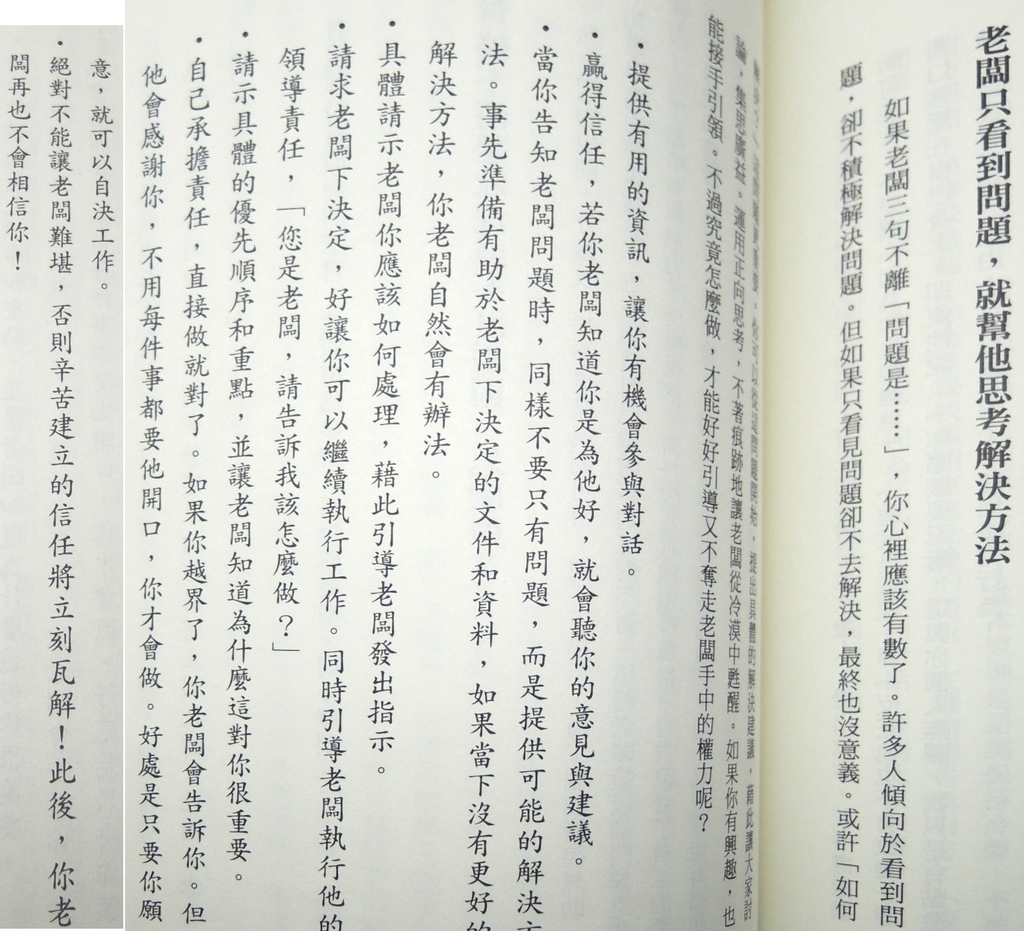 老闆只看到問題，就幫他思考解決方法
如果老闆三句不離「問題是……」，你心裡應該有數了。許多人傾向於看到問
題，卻不積極解決問題。但如果只看見問題卻不去解決，最終也沒意義。或許「如何
你可以從這問題開始，提出具體的解決建議，藉此讓大家討
論，集思廣益。運用正向思考，不著痕跡地讓老闆從冷漠中甦醒。如果你有興趣，也
能接手引領。不過究竟怎麼做，才能好好引導又不奪走老闆手中的權力呢？
•提供有用的資訊，讓你有機會參與對話。
•贏得信任，若你老闆知道你是為他好，就會聽你的意見與建議。
•當你告知老闆問題時，同樣不要只有問題，而是提供可能的解決方
法。事先準備有助於老闆下決定的文件和資料，如果當下沒有更好的
解決方法，你老闆自然會有辦法。
•具體請示老闆你應該如何處理，藉此引導老闆發出指示。
•請求老闆下決定，好讓你可以繼續執行工作。同時引導老闆執行他的
領導責任，「您是老闆，請告訴我該怎麼做？」
•請示具體的優先順序和重點，並讓老闆知道為什麼這對你很重要。
•自己承擔責任，直接做就對了。如果你越界了，你老闆會告訴你。但
他會感謝你，不用每件事都要他開口，你才會做。好處是只要你願
意，就可以自決工作。
•絕對不能讓老闆難堪，否則辛苦建立的信任將立刻瓦解！此後，你老
闆再也不會相信你！